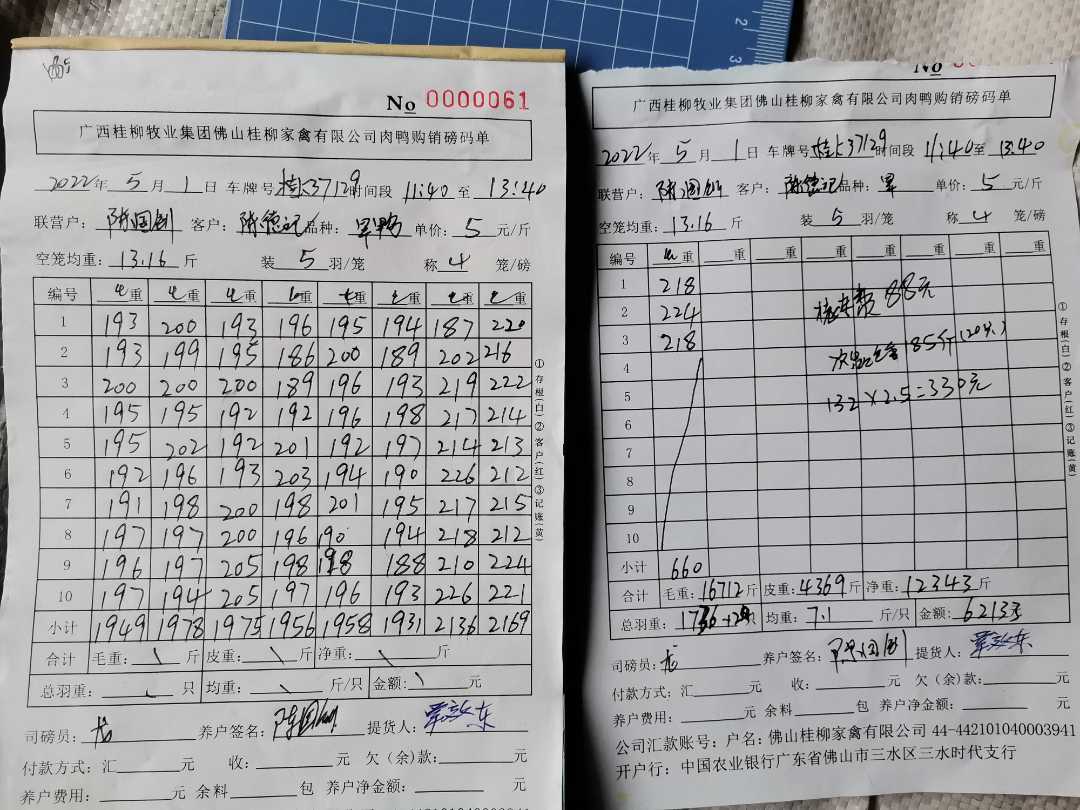 No 0000061
广西桂柳牧业集团佛山桂柳家禽有限公司肉鸭购销磅码单
2022年 5月 1日 车牌号 37129 时间段 11:40 至 13:40
联营户： 客户：陈德记 品种：旱鸭 单价：5 元/斤
空笼均重：13.16 斤 装 5 羽/笼 称 4 笼/磅
编号 重 重 重 重 重 重 重 重
1 193 200 193 196 195 194 187 220
2 193 199 195 186 200 189 202 216
3 200 200 200 189 196 193 219 222
4 195 195 192 192 196 198 217 214
5 195 202 192 201 192 197 214 213
6 192 196 193 203 194 190 226 212
7 191 198 200 198 201 195 217 215
8 197 197 200 196 190 194 218 212
9 196 197 205 198 198 188 210 224
10 197 194 205 197 196 193 226 221
小计 1949 1978 1975 1956 1958 1931 2136 2169
合计 毛重： 斤 皮重： 斤 净重： 斤
总羽重： 只 均重： 斤/只 金额： 元
司磅员：龙 养户签名： 提货人：
付款方式：汇 元 收： 元 欠（余）款： 元
养户费用： 元 余料 包 养户净金额： 元
①存根(白)②客户(红)③记账(黄)
No
广西桂柳牧业集团佛山桂柳家禽有限公司肉鸭购销磅码单
2022年 5月 1日 车牌号 37129 时间段 11:40 至 13:40
联营户： 客户：陈德记 品种：旱 单价：5 元/斤
空笼均重：13.16 斤 装 5 羽/笼 称 4 笼/磅
编号 重 重 重 重 重 重 重 重
1 218
2 224 88元
3 218
4 185斤
5 132×2.5=330元
6
7
8
9
10
小计 660
合计 毛重：16712斤 皮重：4369斤 净重：12343斤
总羽重： 只 均重：7.1 斤/只 金额：62133
司磅员：龙 养户签名： 提货人：
付款方式：汇 元 收： 元 欠（余）款： 元
养户费用： 元 余料 包 养户净金额： 元
公司汇款账号：户名：佛山桂柳家禽有限公司 44-442101040003941
开户行：中国农业银行广东省佛山市三水区三水时代支行
①存根(白)②客户(红)③记账(黄)